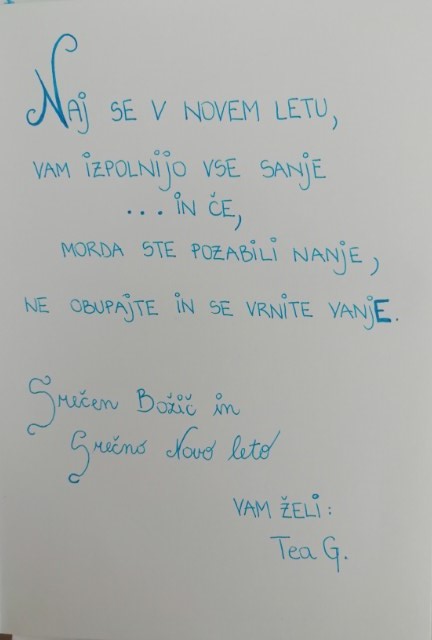 Naj se v novem letu,
vam izpolnijo vse sanje
... in če,
morda ste pozabili nanje,
ne obupajte in se vrnite vanje.
Srečen Božič in
Srečno Novo leto
vam želi:
Tea G.